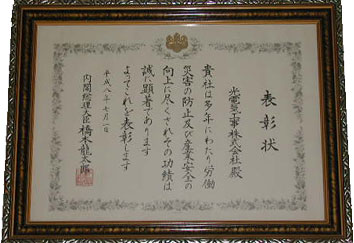 表彰状
水電工事株式会社殿
貴社は多年にわたり労働
災害の防止及び産業安全の
向上に尽くされその功績は
誠に顕著であります
よってこれを表彰します
平成八年七月一日
内閣総理大臣橋本龍太郎